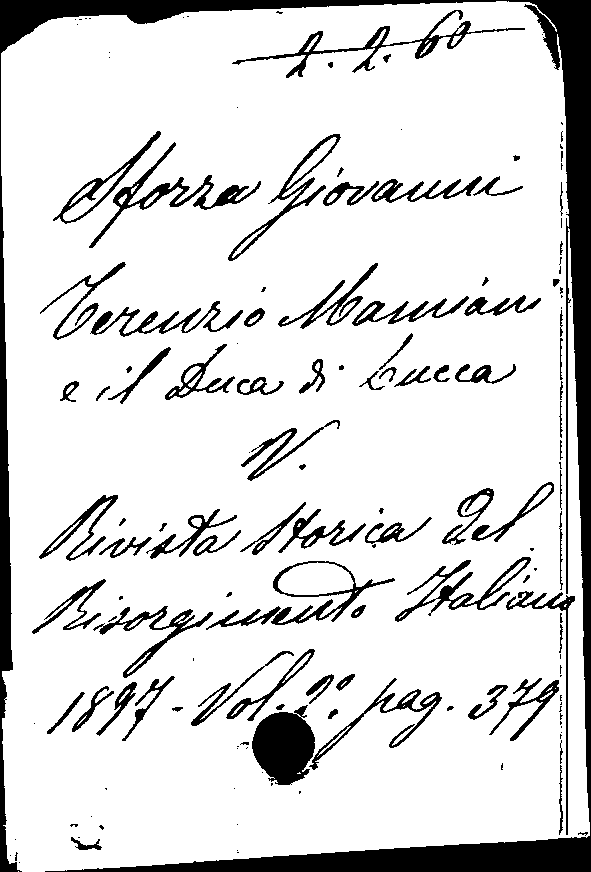 2. 2. 60
Sforza Giovanni
Terenzio Mamiani
e il Duca di Lucca
V.
Rivista storica del
Risorgimento Italiano
1897 - Vol. 2º pag. 379